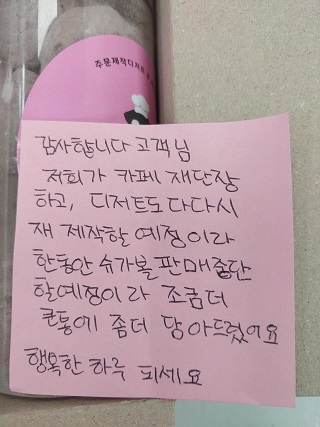 주문제작디저트
감사합니다 고객님
저희가 카페 재단장
하고, 디저트도 다다시
재 제작할 예정이라
한동안 슈가볼 판매중단
할예정이라 조금더
큰통에 좀더 담아드렸어요
행복한 하루 되세요